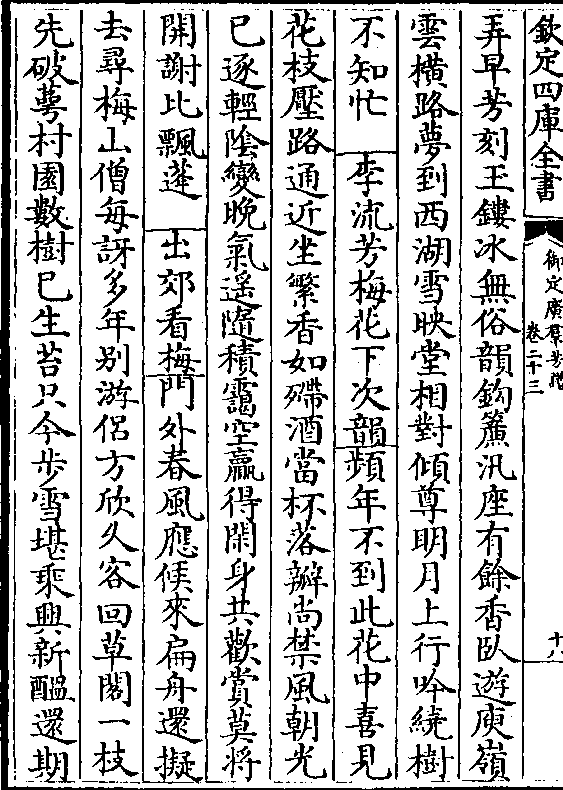 欽定四庫全書
御定廣羣芳譜
卷二十三
十八
弄早芳刻玉鏤冰無俗韻鈎簾汎座有餘香臥遊庾嶺
雲橫路夢到西湖雪映堂相對傾尊明月上行吟繞樹
不知忙　李流芳梅花下次韻頻年不到此花中喜見
花枝壓路通近坐繁香如殢酒當杯落瓣尚禁風朝光
已逐輕陰變晚氣遥隨積靄空贏得閑身共歡賞莫將
開謝比飄蓬　出郊看梅門外春風應候來扁舟還擬
去尋梅山僧每訝多年别游侣方欣久客回草閣一枝
先破蕚村園數樹已生苔只今步雪堪乘興新醖還期